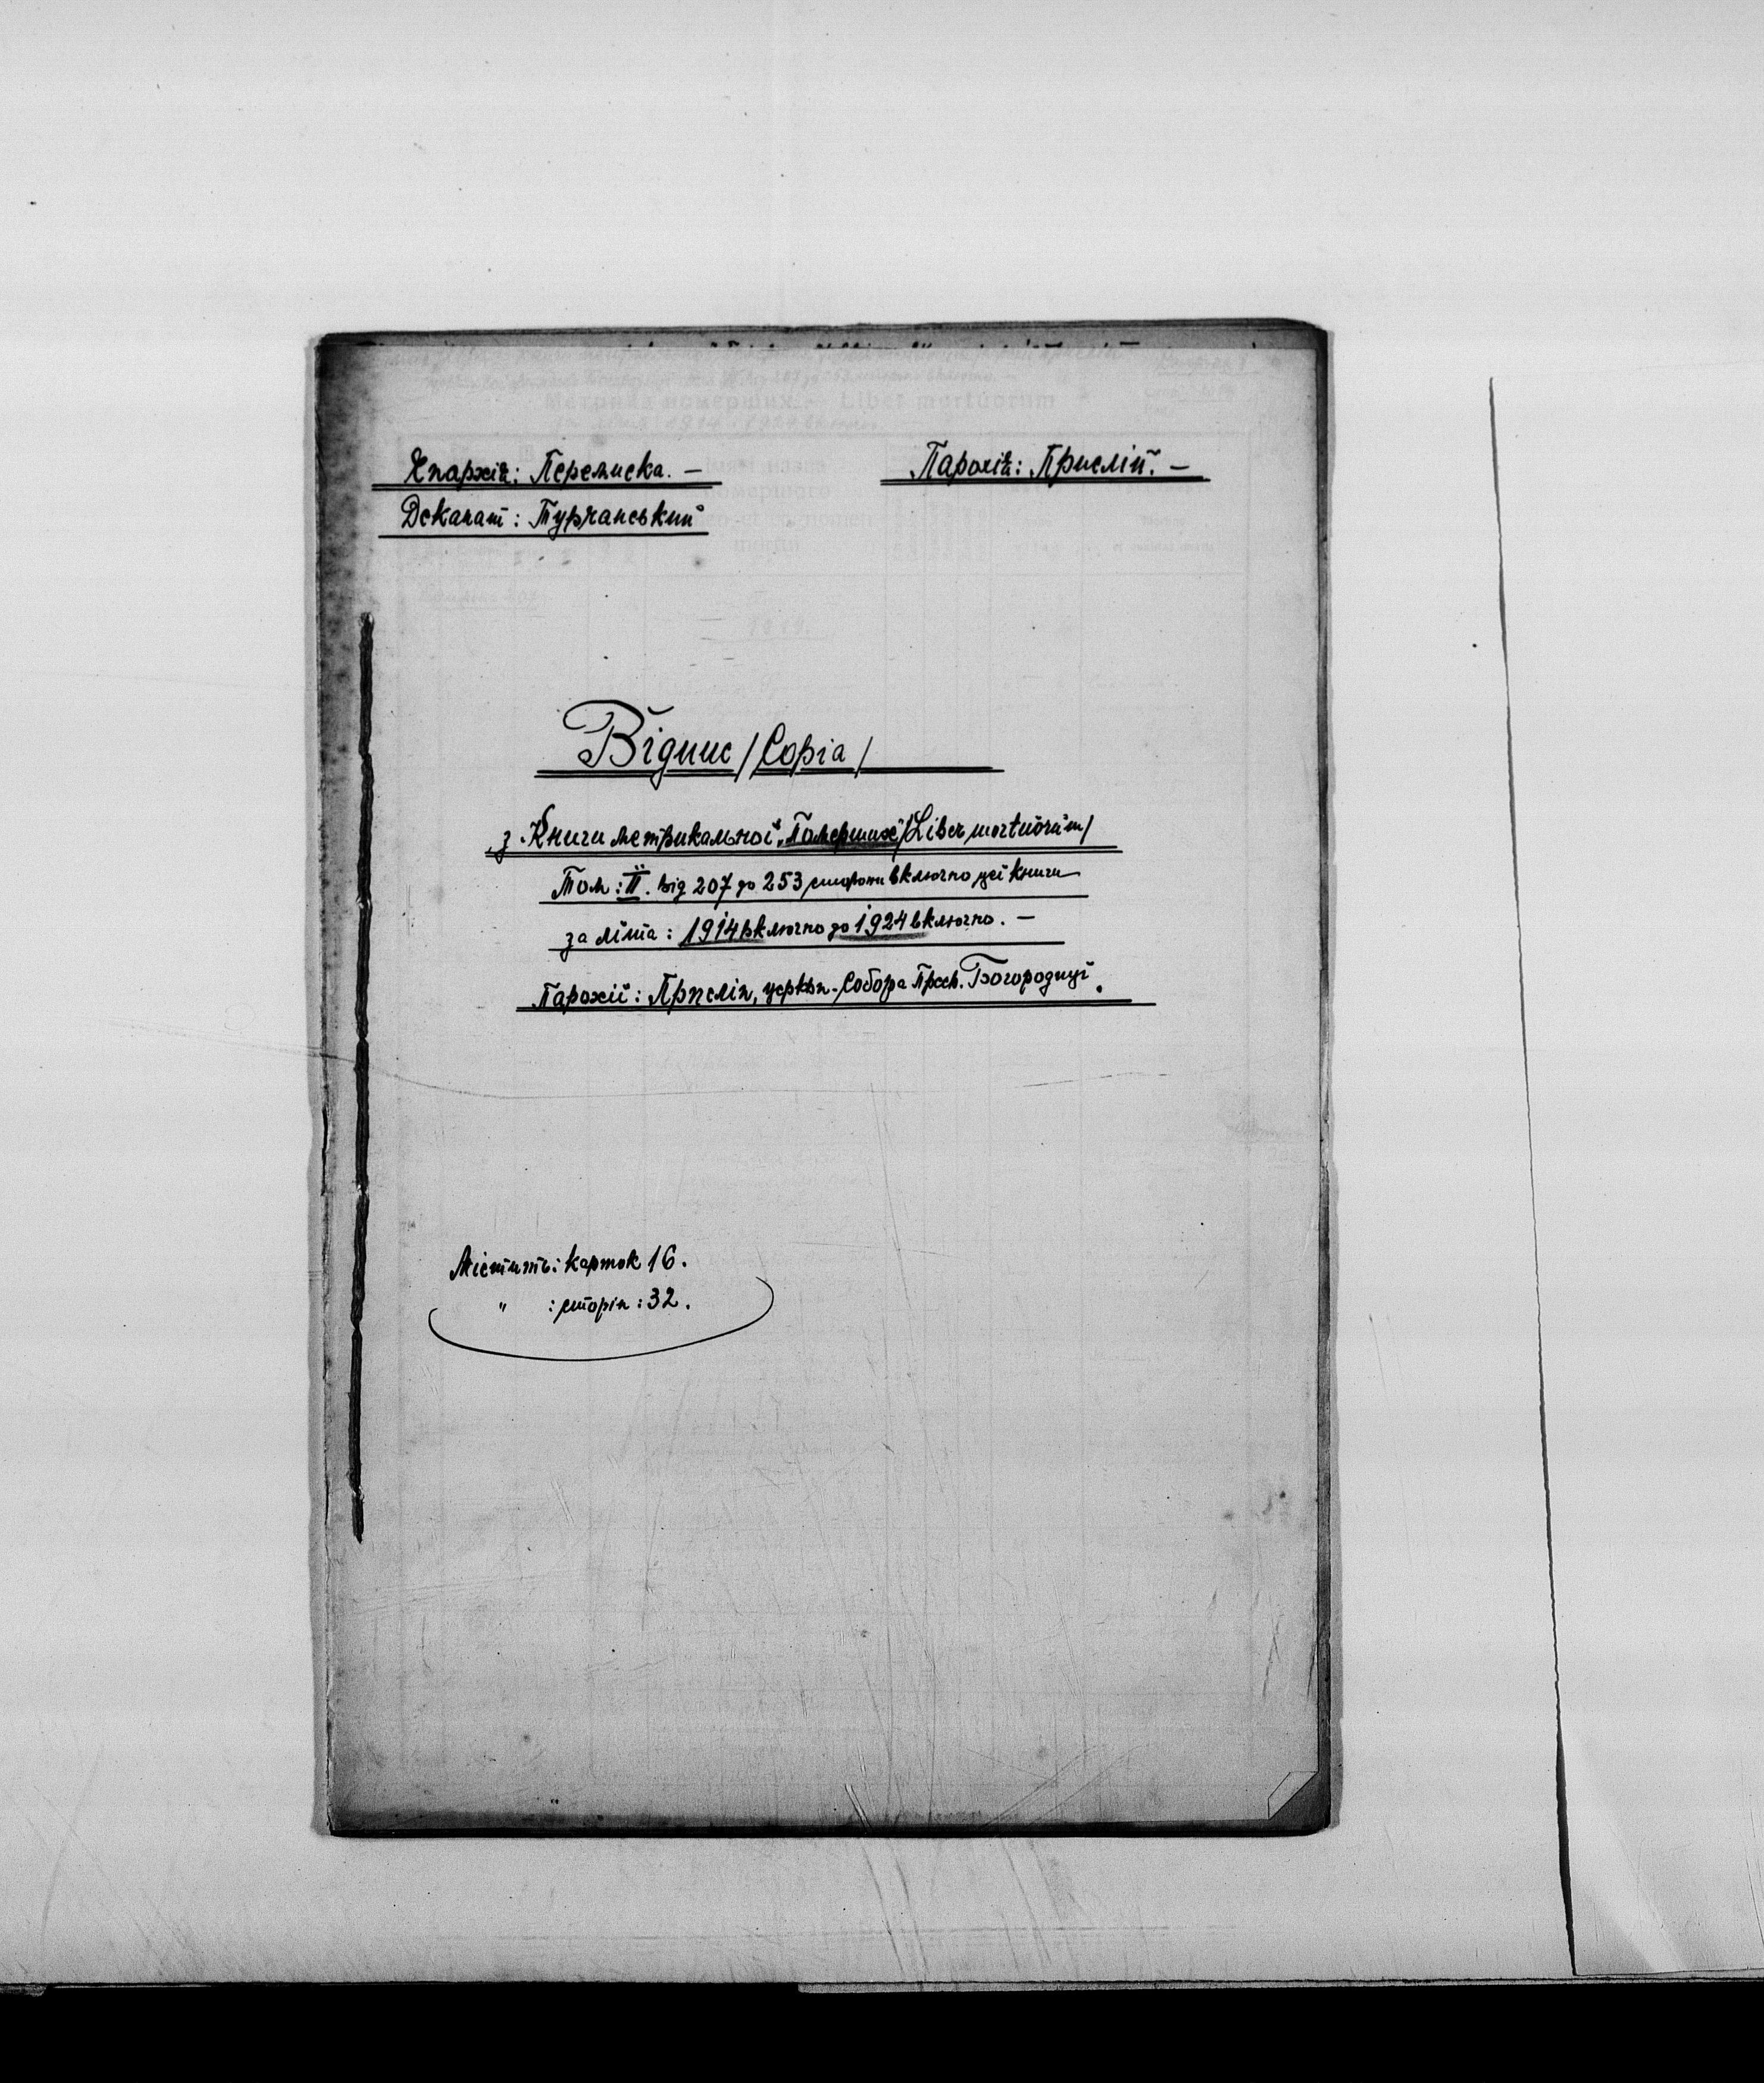 Єпархія: Перемиска. —
Парохія: Прислій. —
Деканат: Турчанський
Відпис / Copia /
з Книги метрикальної „Померших" / Liber mortuorum /
Том: II. від 207 до 253 сторони включно цеї книги
за літа: 1914 включно до 1924 включно. —
Парохії: Прислін, церкви - Собора Пресв. Богородиці.
Містить: карток 16.
" : сторін: 32.
Метрика померших — Liber mortuorum